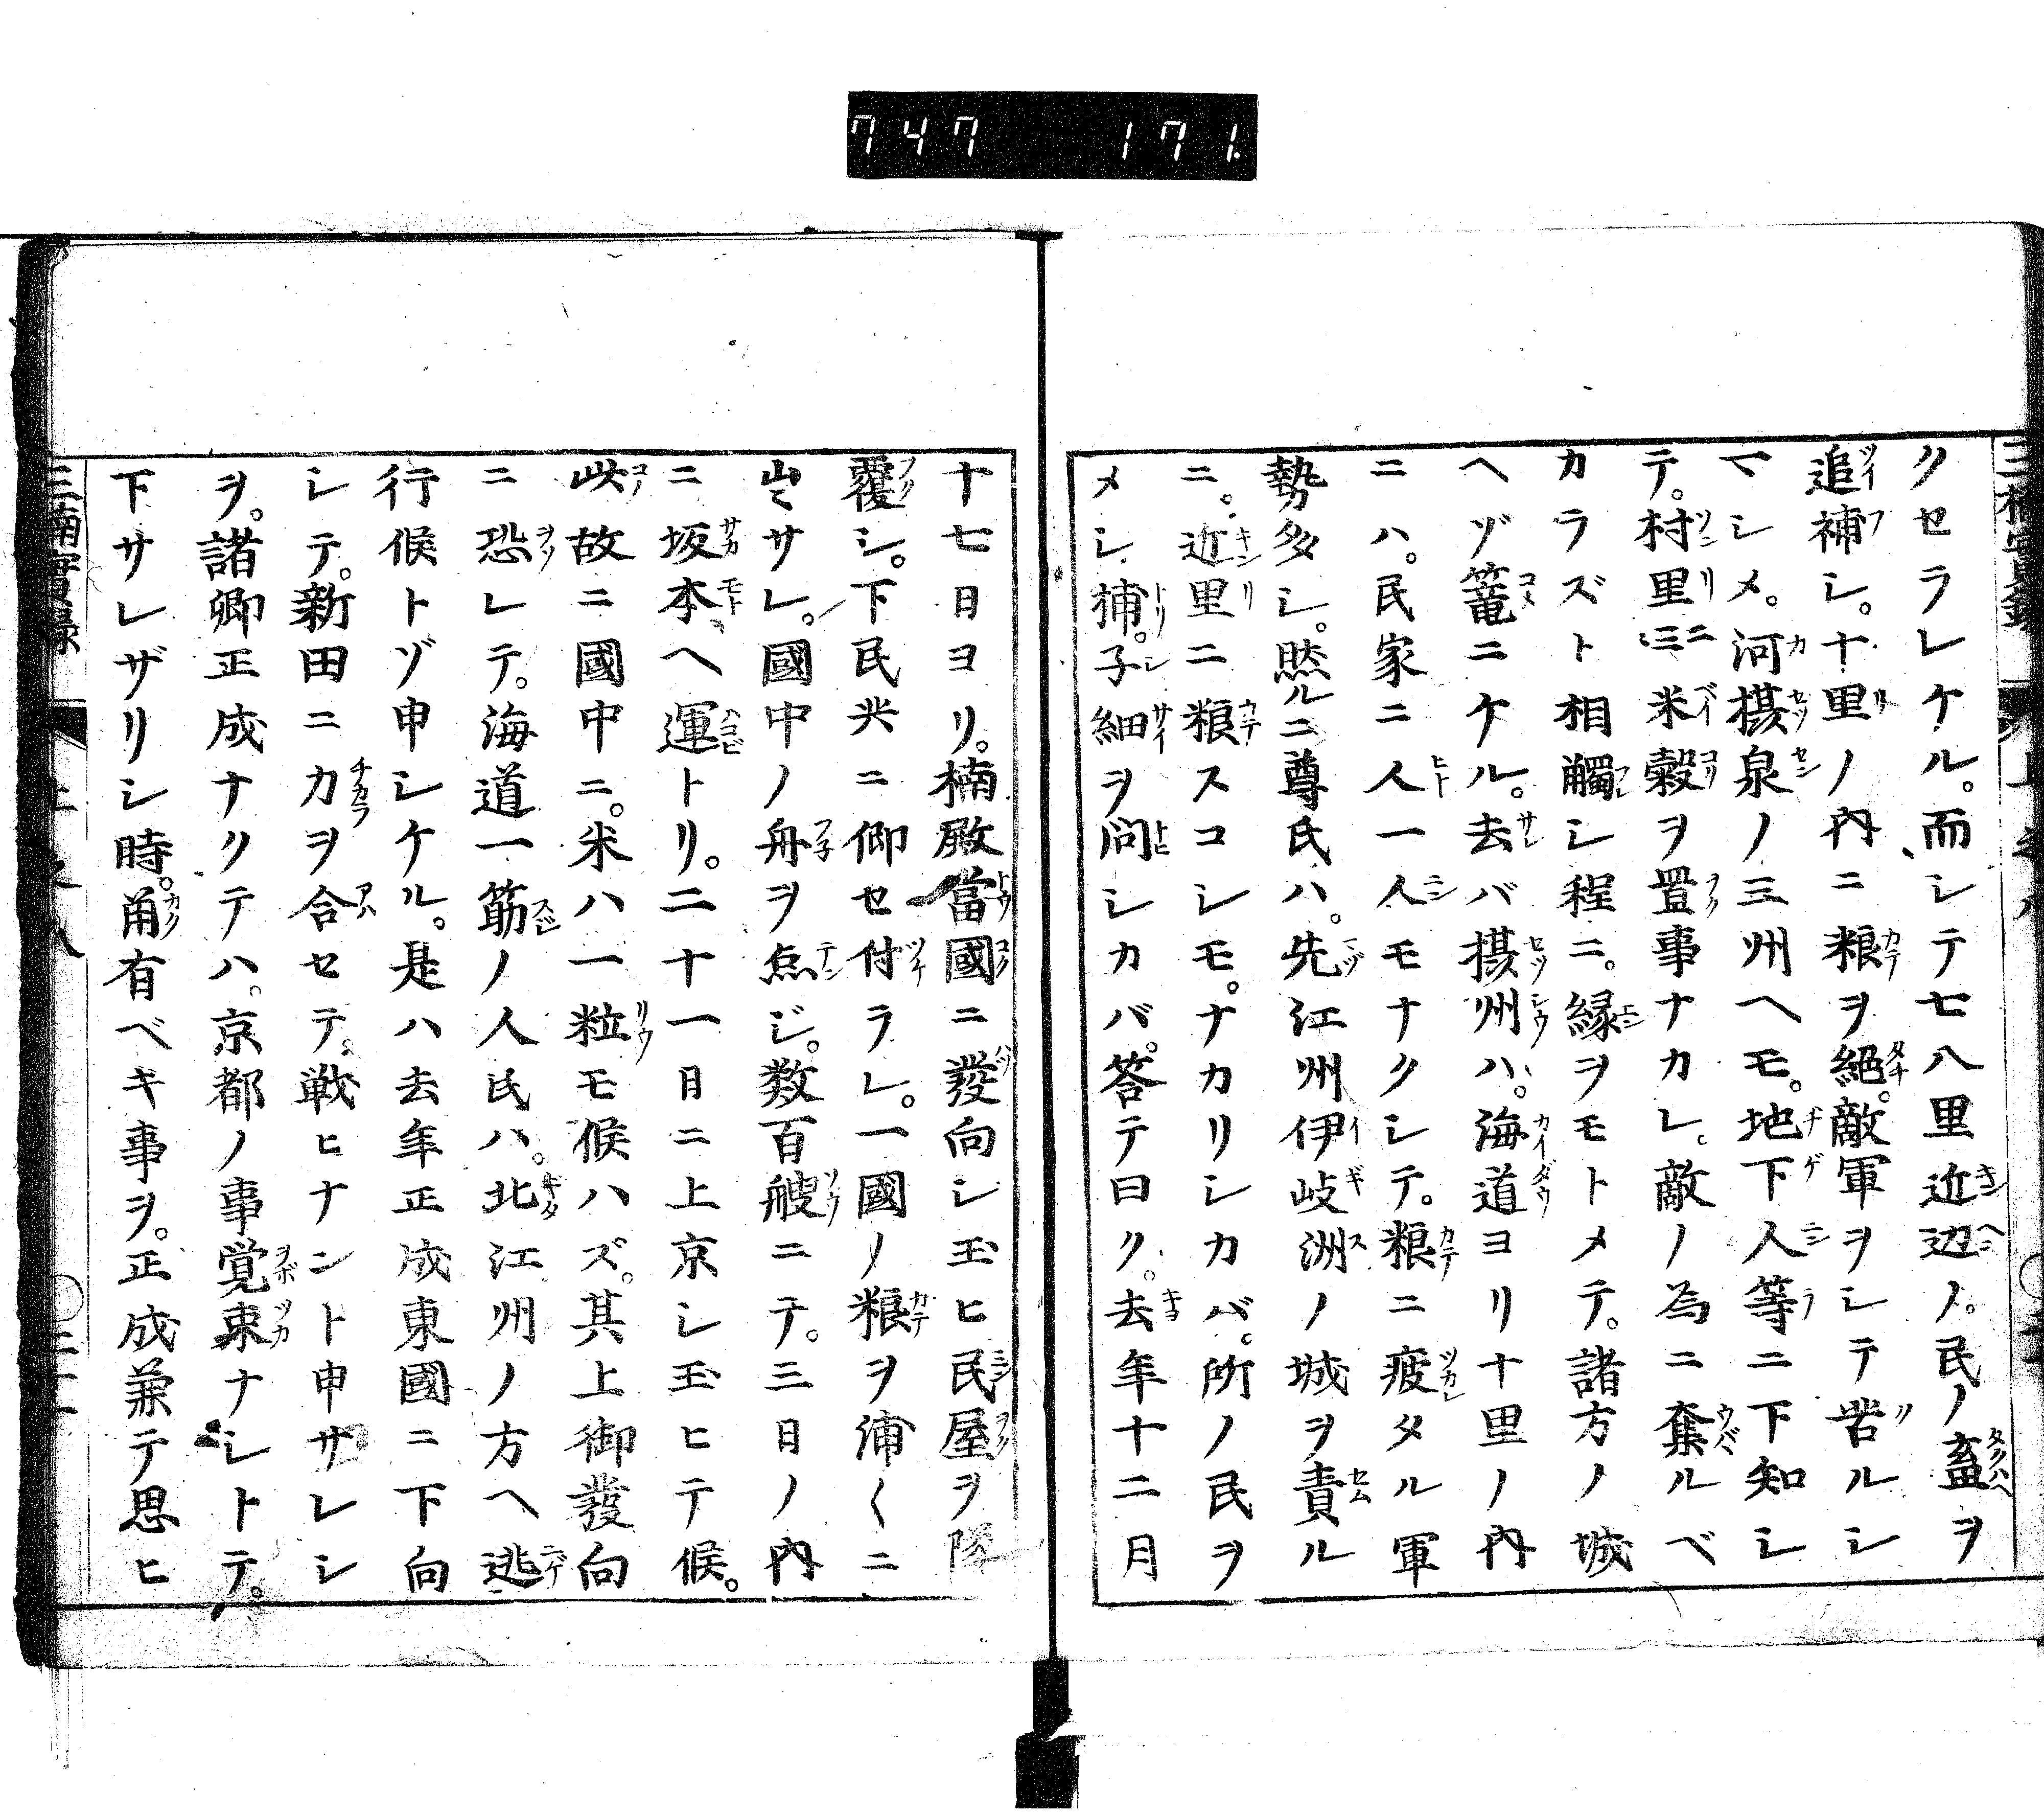 747 171.
クセラレケル。而シテ七八里近辺ノ。民ノ畜ヲ
追補シ。十里ノ内ニ粮ヲ絕。敵軍ヲシテ苦ルシ
マシメ。河摂泉ノ三州ヘモ。地下人等ニ下知シ
テ。村里ニ米穀ヲ置事ナカレ。敵ノ為ニ奪ルベ
カラズト相觸シ程ニ。縁ヲモトメテ。諸方ノ城
ヘヅ篭ニケル。去バ摂州ハ。海道ヨリ十里ノ内
ニハ。民家ニ人一人モナクシテ。粮ニ疲タル軍
勢多シ。然ルニ尊氏ハ。先江州伊岐洲ノ城ヲ責ル
ニ。近里ニ粮スコシモ。ナカリシカバ。所ノ民ヲ
メシ捕。子細ヲ問シカバ。答テ曰ク。去年十二月
十七日ヨリ。楠殿當國ニ發向シ玉ヒ民屋ヲ隊
覆シ。下民共ニ仰セ付ラレ。一國ノ粮ヲ浦〱ニ
出サレ。國中ノ舟ヲ点ジ。数百艘ニテ。三日ノ内
ニ坂本ヘ運トリ。二十一日ニ上京シ玉ヒテ候。
此故ニ國中ニ。米ハ一粒モ候ハズ。其上御發向
ニ恐レテ。海道一筋ノ人民ハ。北江州ノ方ヘ逃
行候トゾ申シケル。是ハ去年正成東國ニ下向
シテ。新田ニカヲ合セテ。戦ヒナント申サレシ
ヲ。諸卿正成ナクテハ。京都ノ事覚束ナシトテ。
下サレザリシ時。角有ベキ事ヲ。正成兼テ思ヒ
三楠實録 上之八